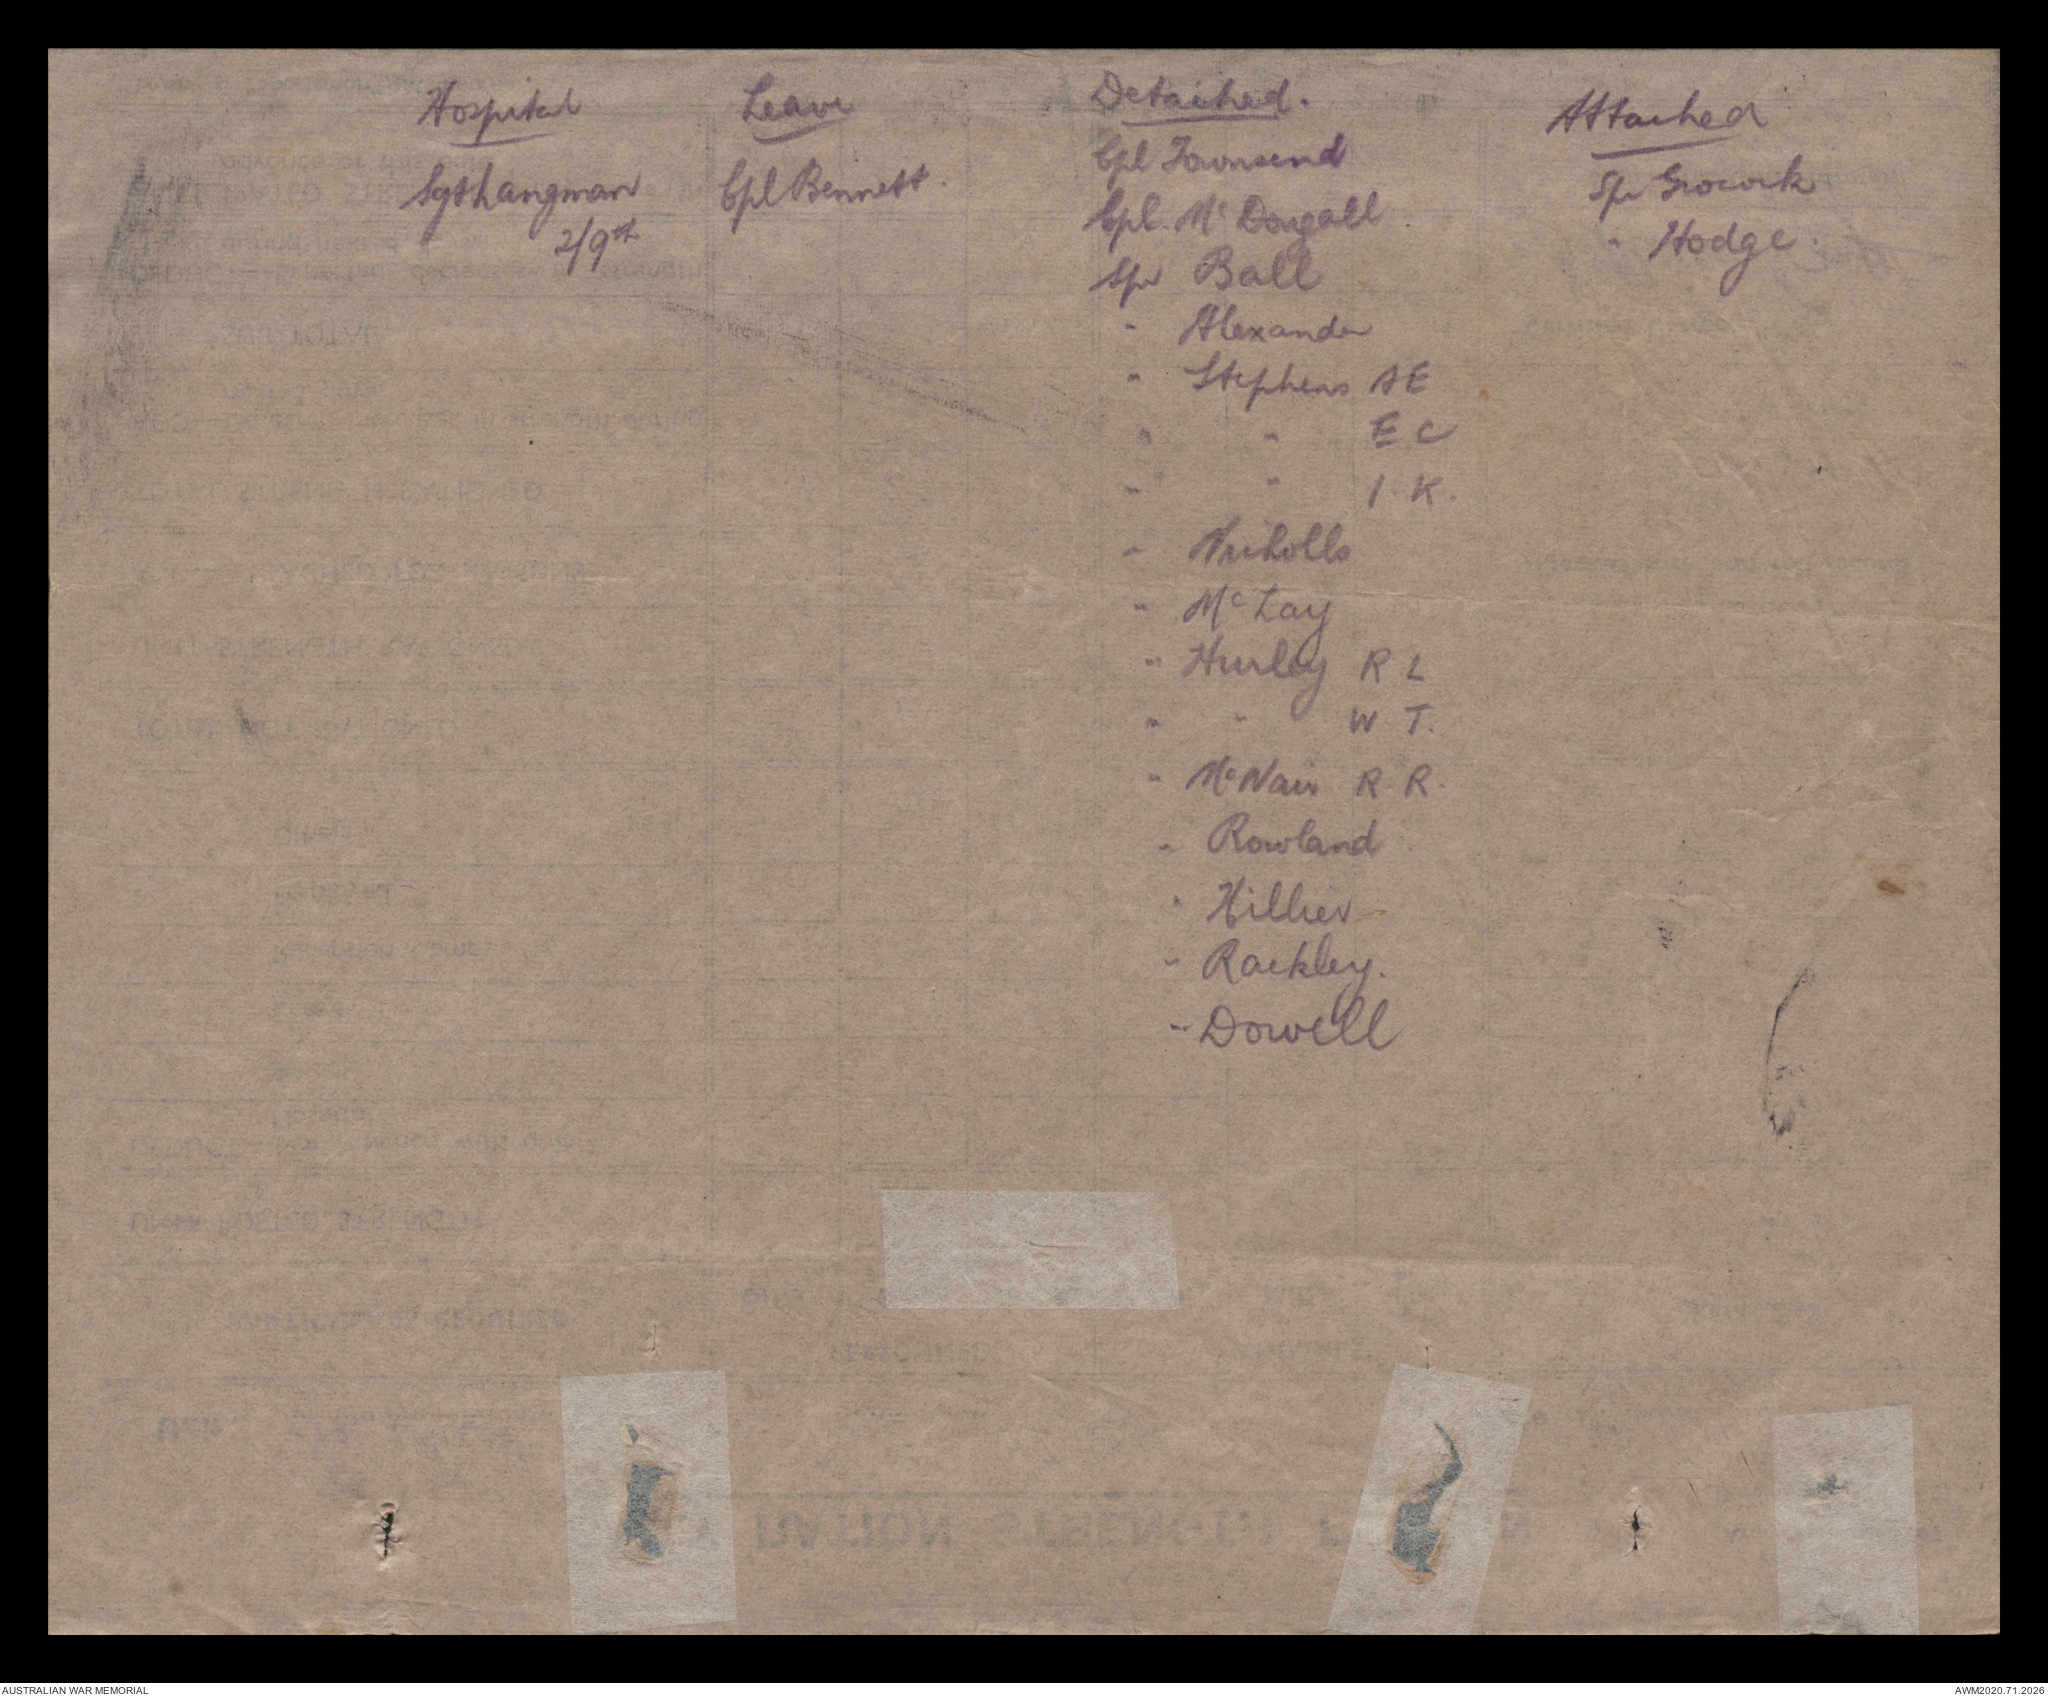 Hospital
Sgt Langman
2/9th
Leave
Cpl Bennett.
Detached.
Cpl Townsend
Cpl. Mc Dougall
Spr Ball
" Alexander
" Stephens A E
" " E C
" " I. K.
" Nicholls
" Mc Lay
" Hurley R L
" " W. T.
" McNair R. R.
" Rowland
" Hillier
" Rackley.
" Dowell
Attached
Spr Grocock
" Hodge.
AUSTRALIAN WAR MEMORIAL
AWM2020.71.2026